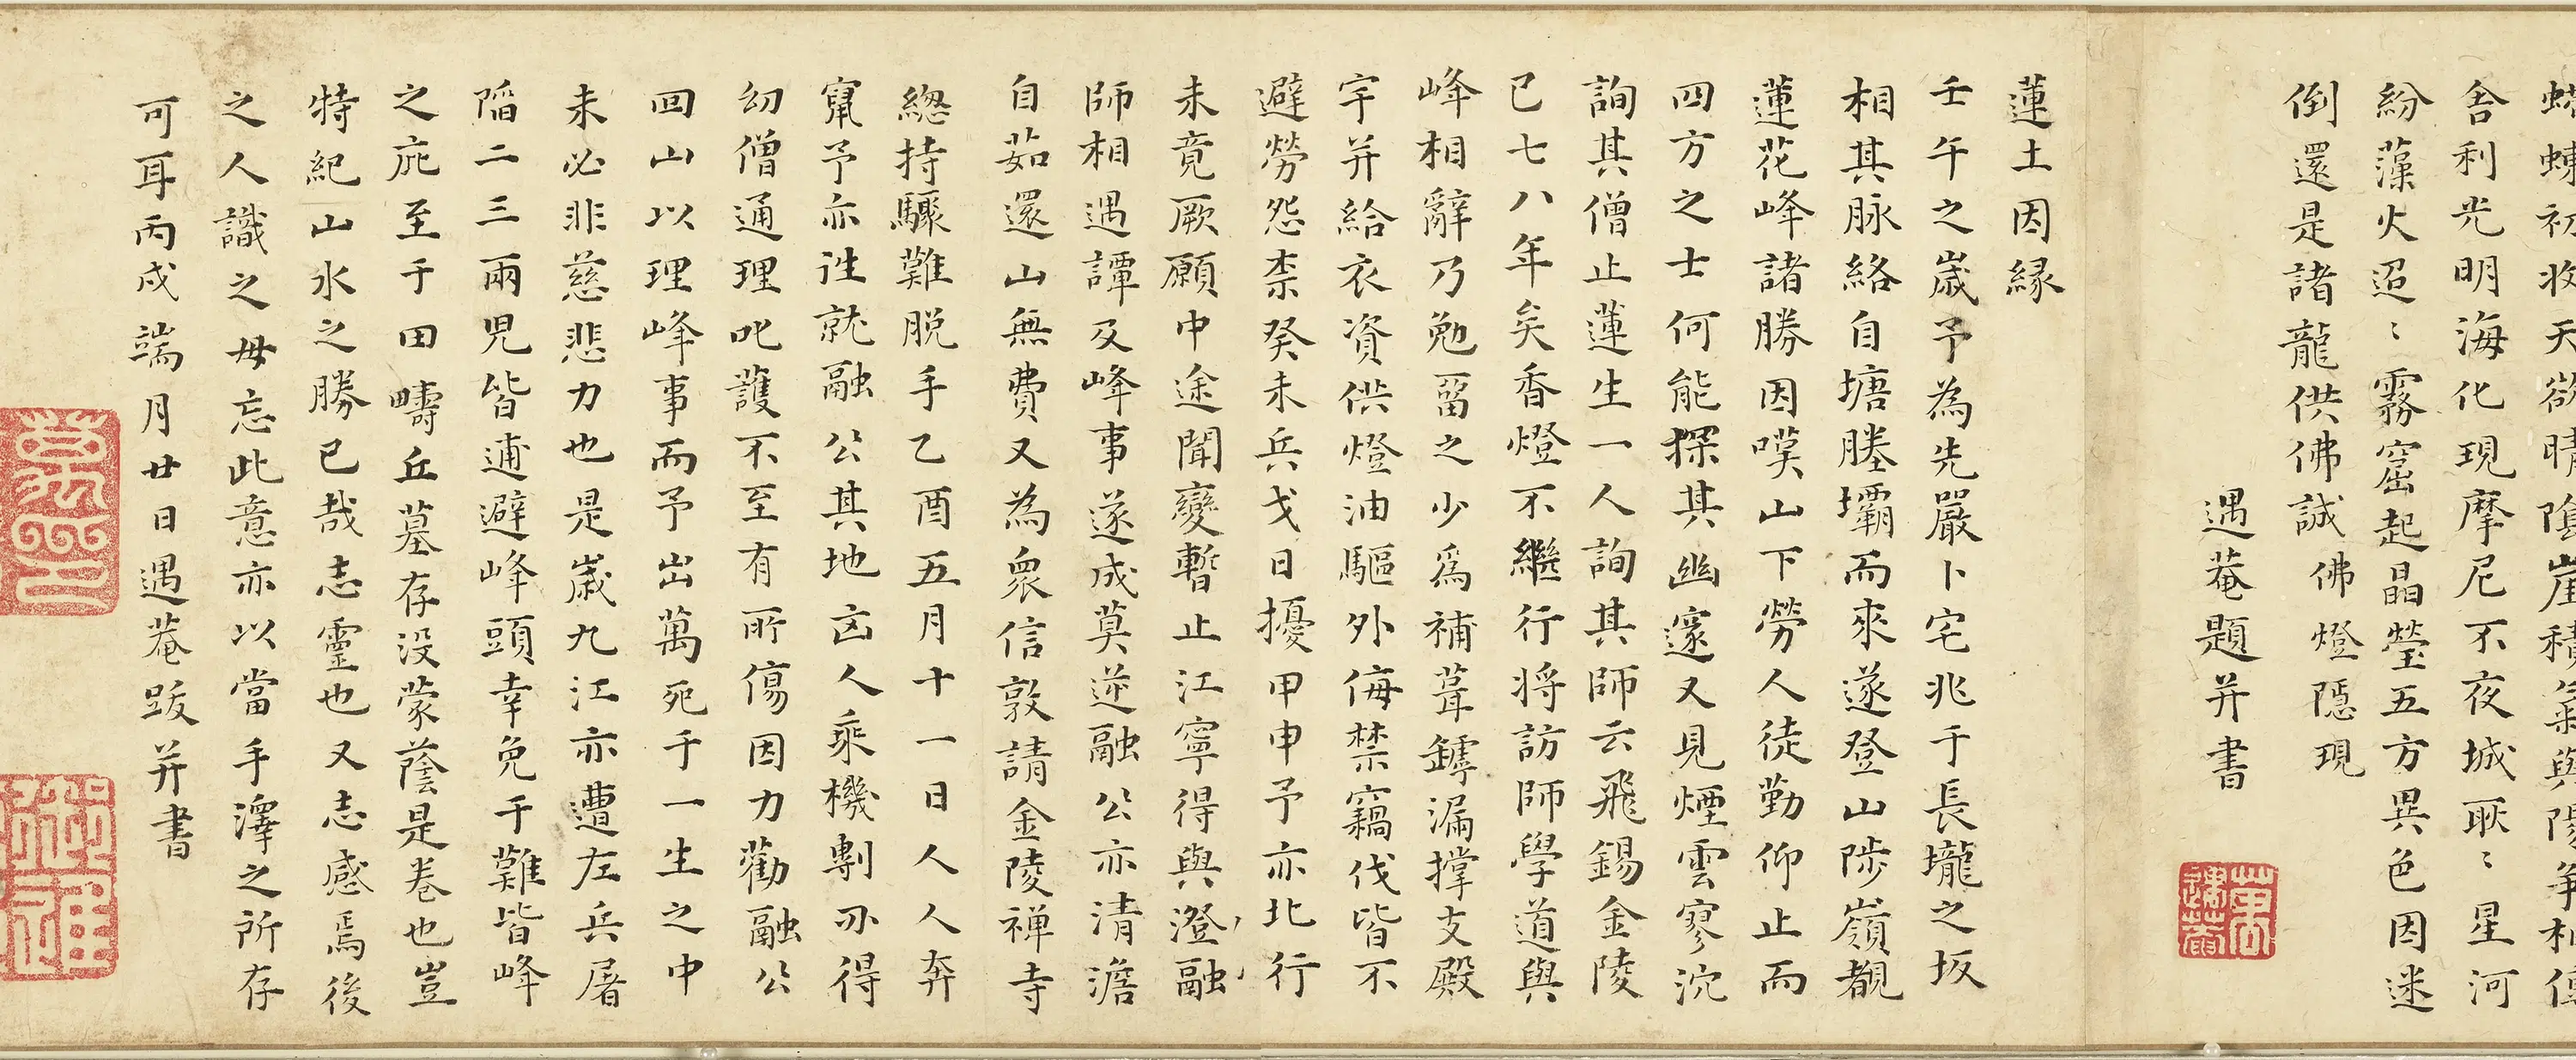 舎利光明海化現摩尼不夜城耿〻星河
紛藻火迢〻霧窟起晶瑩五方異色因迷
倒還是諸龍供佛誠 佛燈隱現
遇菴題并書
蓮土因緣
壬午之歲予為先嚴卜宅兆于長壠之坂
相其脉絡自塘塍壩而來遂登山陟嶺覩
蓮花峰諸勝因嘆山下勞人徒勤仰止而
四方之士何能探其幽邃又見煙雲寥沉
詢其僧止蓮生一人詢其師云飛錫金陵
已七八年矣香燈不繼行將訪師學道與
峰相辭乃勉畱之少爲補葺罅漏撐支殿
宇并給衣資供燈油驅外侮禁竊伐皆不
避勞怨柰癸未兵戈日擾甲申予亦北行
未竟厥願中途聞變暫止江寧得與澄融
師相遇譚及峰事遂成莫逆融公亦清澹
自茹還山無費又為衆信敦請金陵禅寺
緫持驟難脱手乙酉五月十一日人人奔
竄予亦詿就融公其地囱人乘機剸刅得
幼僧通理叱護不至有所傷因力勸融公
回山以理峰事而予出萬死千一生之中
未必非慈悲力也是歲九江亦遭左兵屠
陷二三兩児皆逋避峰頭幸免千難皆峰
之庇至于田疇丘墓存没蒙蔭是卷也豈
特紀山水之勝已哉志靈也又志感焉後
之人識之毋忘此意亦以當手澤之所存
可耳丙戌端月廿日遇菴跋并書